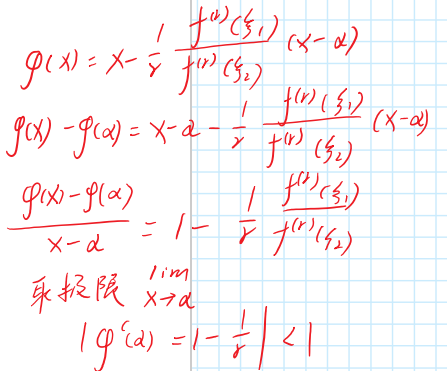 φ(x) = x - 1/r f^(r)(ξ₁)/f^(r)(ξ₂) (x-α)
φ(x) - φ(α) = x-α - 1/r f^(r)(ξ₁)/f^(r)(ξ₂) (x-α)
φ(x)-φ(α)/x-α = 1 - 1/r f^(r)(ξ₁)/f^(r)(ξ₂)
取极限 lim x→α
|φ'(α) = 1 - 1/r| < 1